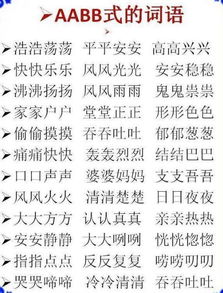 AABB式的词语
浩浩荡荡 平平安安 高高兴兴
快快乐乐 风风光光 安安稳稳
沸沸扬扬 风风雨雨 鬼鬼祟祟
家家户户 堂堂正正 形形色色
偷偷摸摸 吞吞吐吐 郁郁葱葱
痛痛快快 轰轰烈烈 结结巴巴
口口声声 婆婆妈妈 支支吾吾
风风火火 清清楚楚 日日夜夜
大大方方 认认真真 亲亲热热
安安静静 大大咧咧 恍恍惚惚
指指点点 反反复复 唠唠叨叨
哭哭啼啼 冷冷清清 吞吞吐吐